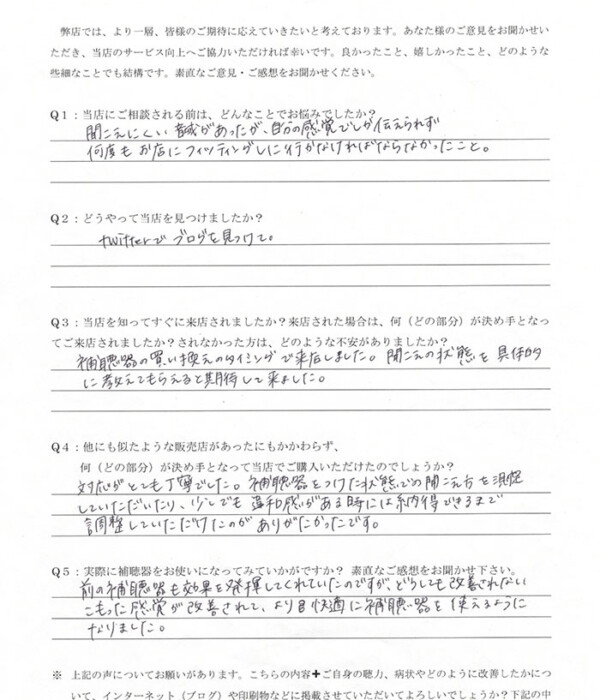 弊店では、より一層、皆様のご期待に応えていきたいと考えております。あなた様のご意見をお聞かせい
ただき、当店のサービス向上へご協力いただければ幸いです。良かったこと、嬉しかったこと、どのような
些細なことでも結構です。素直なご意見・ご感想をお聞かせください。
Q1：当店にご相談される前は、どんなことでお悩みでしたか？
聞こえにくい音域があったが、自分の感覚でしか伝えられず
何度もお店にフィッティングしに行かなければならなかったこと。
Q2：どうやって当店を見つけましたか？
twitterでブログを見つけて。
Q3：当店を知ってすぐに来店されましたか？来店された場合は、何（どの部分）が決め手となっ
てご来店されましたか？されなかった方は、どのような不安がありましたか？
補聴器の買い換えのタイミングで来店しました。聞こえの状態を具体的
に教えてもらえると期待して来ました。
Q4：他にも似たような販売店があったにもかかわらず、
何（どの部分）が決め手となって当店でご購入いただけたのでしょうか？
対応がとても丁寧でした。補聴器をつけた状態での聞こえ方を測定
していただいたり、少しでも違和感がある時には納得できるまで
調整していただけたのがありがたかったです。
Q5：実際に補聴器をお使いになってみていかがですか？ 素直なご感想をお聞かせ下さい。
前の補聴器も効果を発揮してくれていたのですが、どうしても改善されない
こもった感覚が改善されて、より快適に補聴器を使えるように
なりました。
※ 上記の声についてお願いがあります。こちらの内容＋ご自身の聴力、病状やどのように改善したかにつ
いて、インターネット（ブログ）や印刷物などに掲載させていただいてよろしいでしょうか？下記の中